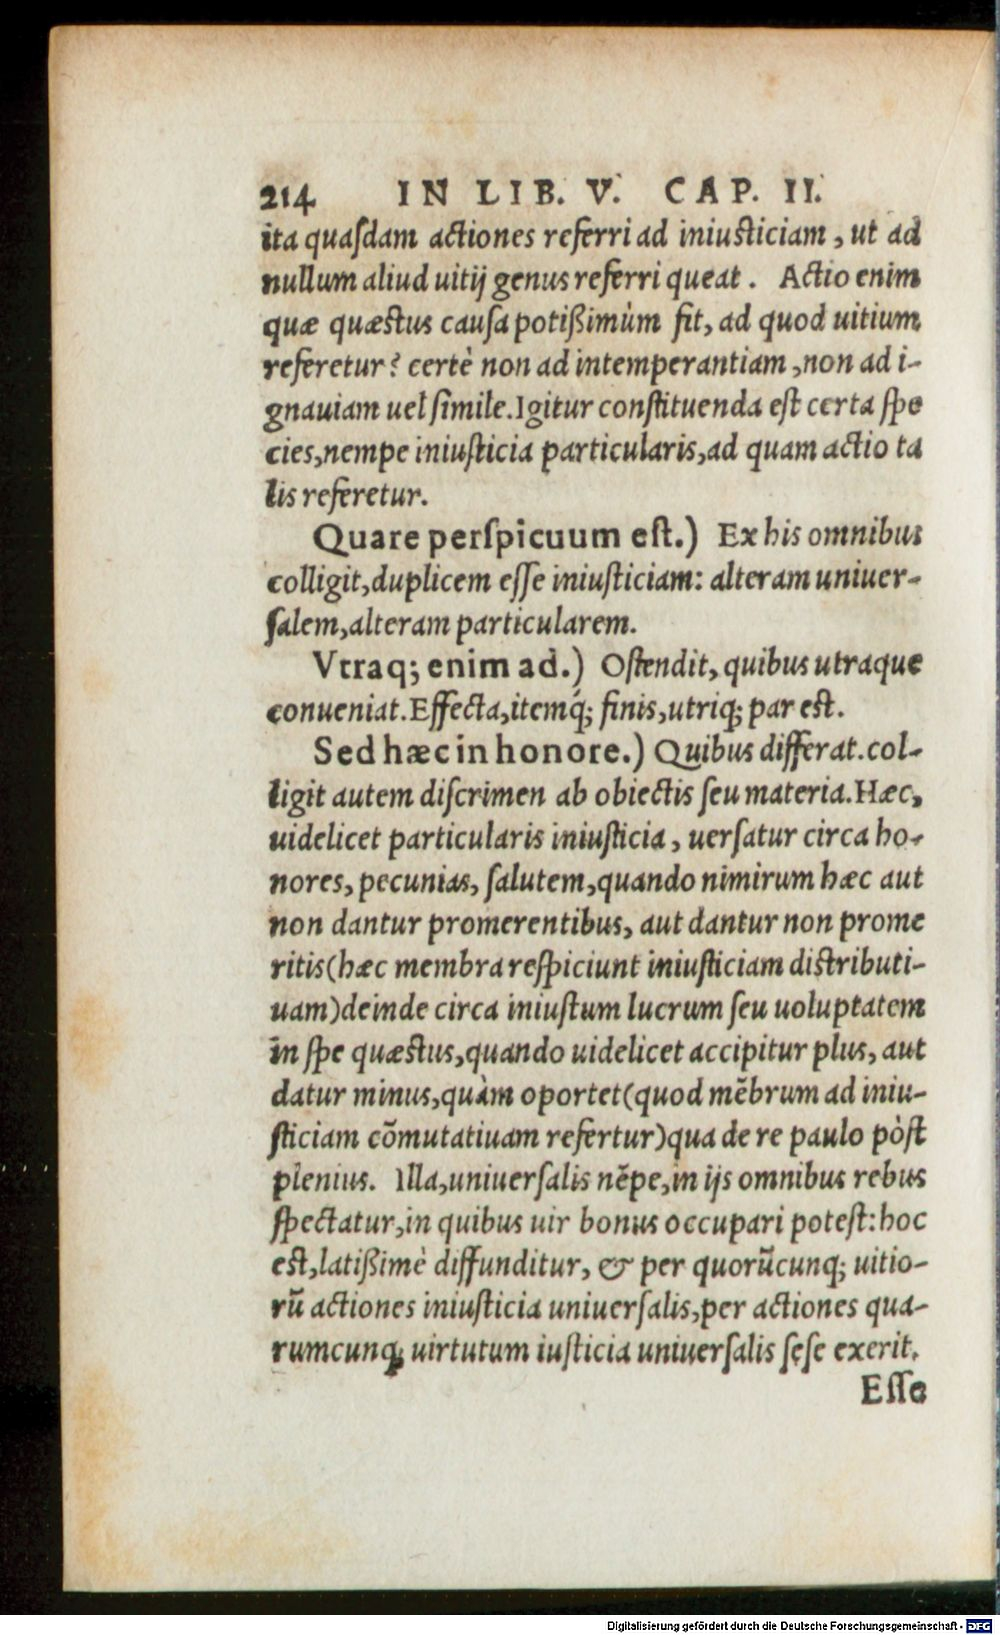 214 IN LIB. V. CAP. II.
ita quaſdam actiones referri ad iniusticiam, ut ad
nullum aliud uitij genus referri queat. Actio enim
quæ quæstus cauſa potißimùm fit, ad quod uitium
referetur? certè non ad intemperantiam, non ad i-
gnauiam uel ſimile. Igitur conſtituenda eſt certa ſpe
cies, nempe iniuſticia particularis, ad quam actio ta
lis referetur.
Quare perſpicuum eſt.) Ex his omnibus
colligit, duplicem eſſe iniuſticiam: alteram uniuer-
ſalem, alteram particularem.
Vtraq; enim ad.) Oſtendit, quibus utraque
conueniat. Effecta, itemq́; finis, utriq; par eſt.
Sed hæc in honore.) Quibus differat. col-
ligit autem diſcrimen ab obiectis ſeu materia. Hæc,
uidelicet particularis iniuſticia, uerſatur circa ho-
nores, pecunias, ſalutem, quando nimirum hæc aut
non dantur promerentibus, aut dantur non prome
ritis (hæc membra reſpiciunt iniuſticiam distributi-
uam) deinde circa iniuſtum lucrum ſeu uoluptatem
in ſpe quæstus, quando uidelicet accipitur plus, aut
datur minus, quàm oportet (quod mēbrum ad iniu-
ſticiam cōmutatiuam refertur) qua de re paulo pòſt
plenius. Illa, uniuerſalis nēpe, in ijs omnibus rebus
ſpectatur, in quibus uir bonus occupari poteſt: hoc
est, latißimè diffunditur, & per quorūcunq; uitio-
rū actiones iniuſticia uniuerſalis, per actiones qua-
rumcunq; uirtutum iuſticia uniuerſalis ſeſe exerit.
Eſſe
Digitalisierung gefördert durch die Deutsche Forschungsgemeinschaft - DFG